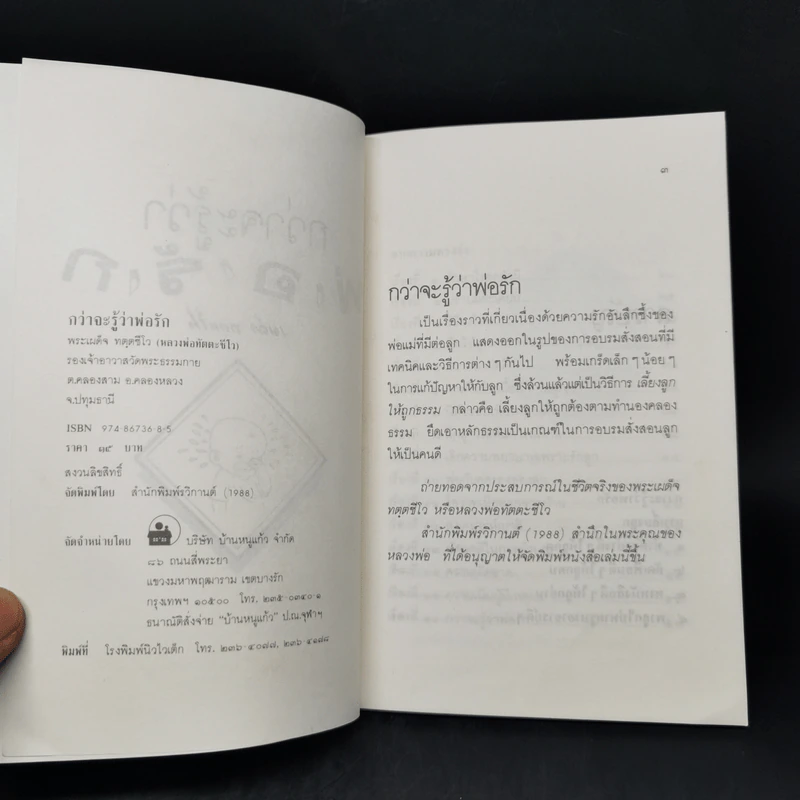 กว่าจะรู้ว่าพ่อรัก
พระเผด็จ ทตฺตชีโว (หลวงพ่อทัตตะชีโว)
รองเจ้าอาวาสวัดพระธรรมกาย
ต.คลองสาม อ.คลองหลวง
จ.ปทุมธานี
ISBN 974-86736-8-5
ราคา ๓๕ บาท
สงวนลิขสิทธิ์
จัดพิมพ์โดย สำนักพิมพ์รวิกานต์ (1988)
จัดจำหน่ายโดย บริษัท บ้านหนูแก้ว จำกัด
๘๖ ถนนสี่พระยา
แขวงมหาพฤฒาราม เขตบางรัก
กรุงเทพฯ ๑๐๕๐๐ โทร. ๒๓๕-๐๓๔๐-๑
ธนาณัติสั่งจ่าย "บ้านหนูแก้ว" ป.ณ.จุฬาฯ
พิมพ์ที่ โรงพิมพ์นิวไวเต็ก โทร. ๒๓๖-๔๐๗๗, ๒๓๖-๔๑๘๘
๓
กว่าจะรู้ว่าพ่อรัก
เป็นเรื่องราวที่เกี่ยวเนื่องด้วยความรักอันลึกซึ้งของ
พ่อแม่ที่มีต่อลูก แสดงออกในรูปของการอบรมสั่งสอนที่มี
เทคนิคและวิธีการต่าง ๆ กันไป พร้อมเกร็ดเล็ก ๆ น้อย ๆ
ในการแก้ปัญหาให้กับลูก ซึ่งล้วนแล้วแต่เป็นวิธีการ เลี้ยงลูก
ให้ถูกธรรม กล่าวคือ เลี้ยงลูกให้ถูกต้องตามทำนองคลอง
ธรรม ยึดเอาหลักธรรมเป็นเกณฑ์ในการอบรมสั่งสอนลูก
ให้เป็นคนดี
ถ่ายทอดจากประสบการณ์ในชีวิตจริงของพระเผด็จ
ทตฺตชีโว หรือหลวงพ่อทัตตะชีโว
สำนักพิมพ์รวิกานต์ (1988) สำนึกในพระคุณของ
หลวงพ่อ ที่ได้อนุญาตให้จัดพิมพ์หนังสือเล่มนี้ขึ้น